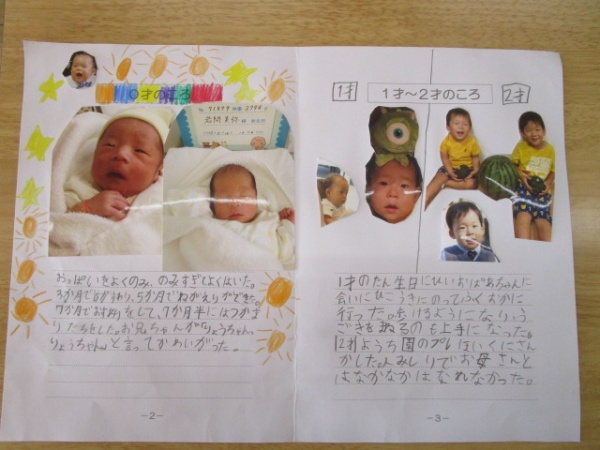 0才のころ
おっぱいをよくのみ、のみすぎてよくはいた。
3か月で首がすわり、5か月でねがえりができた。
7か月でおすわりをして、7か月半にはつかまり
だちをした。お兄ちゃんが「りょうちゃん、
りょうちゃん」と言ってかわいがった。
-2-
1才
1才〜2才のころ
2才
1才のたん生日にひいおばあちゃんに
会いにひこうきにのってふくおかに
行った。あけるようになり、
ごきをぬるのも上手になった。
2才ようち園のプレほいくにさん
かした。人みしりでお母さんと
はなかなかはなれなかった。
-3-